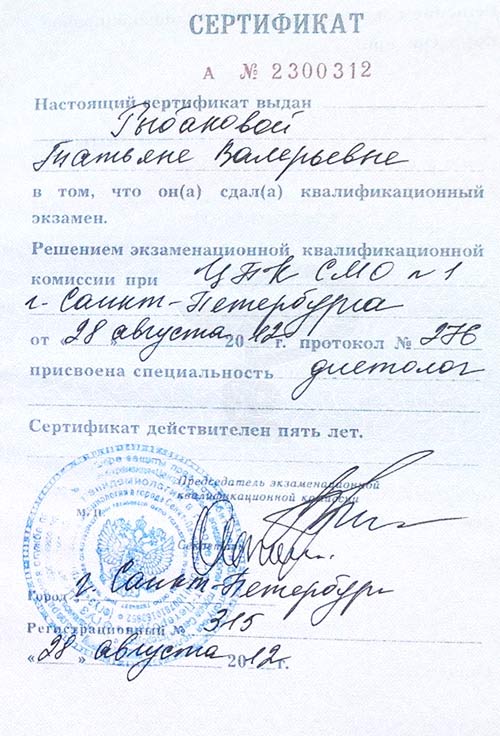 СЕРТИФИКАТ
А № 2300312
Настоящий сертификат выдан
Рыбаковой
Татьяне Валерьевне
в том, что он(а) сдал(а) квалификационный
экзамен.
Решением экзаменационной квалификационной
комиссии при ЦПК СМО №1
г. Санкт-Петербурга
от «28» августа 2012 г. протокол № 276
присвоена специальность диетолог
Сертификат действителен пять лет.
Председатель экзаменационной
квалификационной комиссии
М. П.
Секретарь
Город г. Санкт-Петербург
Регистрационный № 315
«28» августа 2012 г.